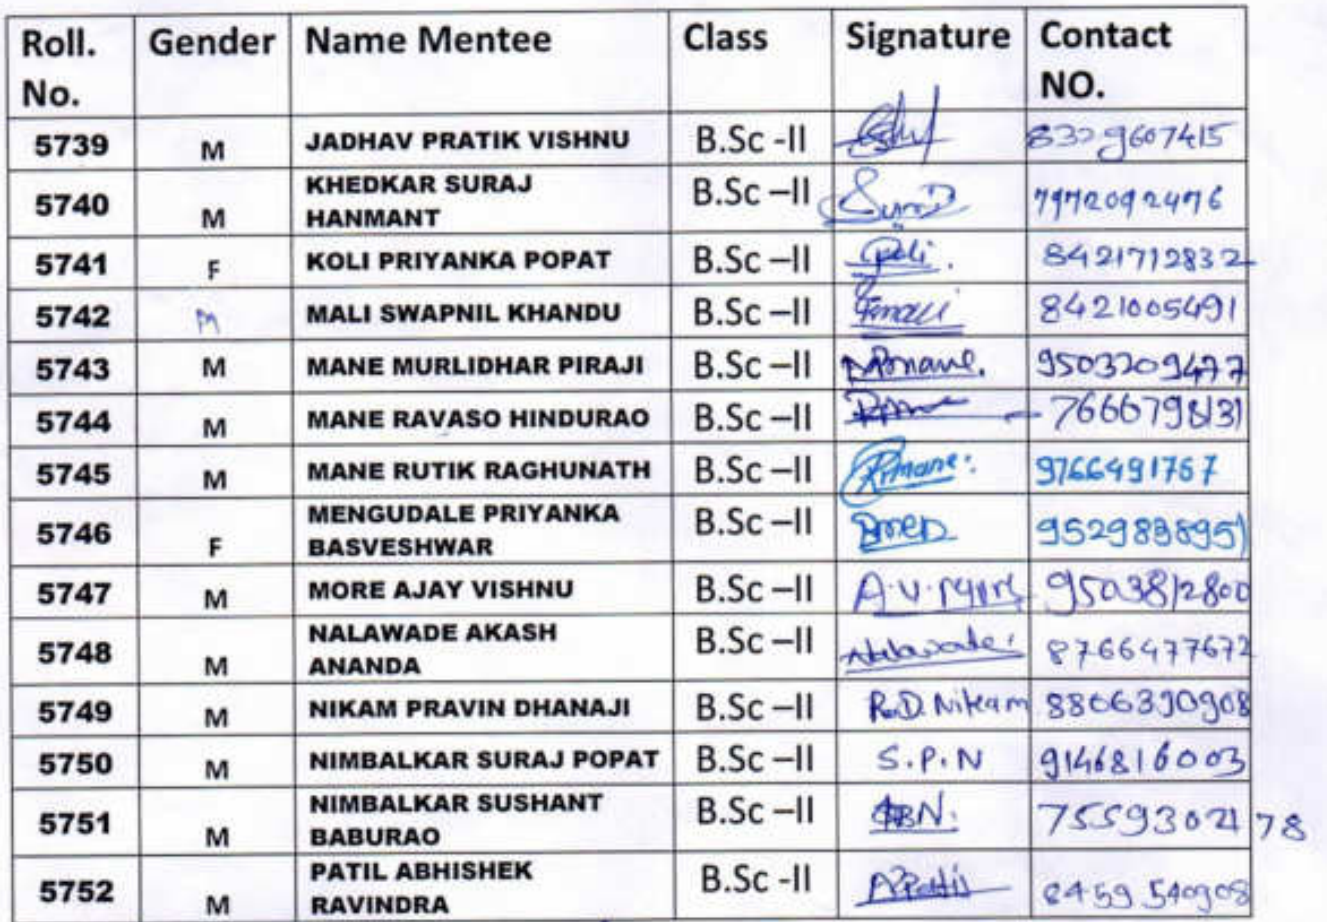 Roll. No. Gender Name Mentee Class Signature Contact NO.
5739 M JADHAV PRATIK VISHNU B.Sc -II 8329607415
5740 M KHEDKAR SURAJ HANMANT B.Sc –II Suraj 7972092476
5741 F KOLI PRIYANKA POPAT B.Sc –II Koli. 8421712832
5742 M MALI SWAPNIL KHANDU B.Sc –II Smali 8421005491
5743 M MANE MURLIDHAR PIRAJI B.Sc –II Mane. 9503209477
5744 M MANE RAVASO HINDURAO B.Sc –II 7666798131
5745 M MANE RUTIK RAGHUNATH B.Sc –II Rmane. 9766491767
5746 F MENGUDALE PRIYANKA BASVESHWAR B.Sc –II 9529838951
5747 M MORE AJAY VISHNU B.Sc –II A.V.More 9503812800
5748 M NALAWADE AKASH ANANDA B.Sc –II Nalawade. 8766477672
5749 M NIKAM PRAVIN DHANAJI B.Sc –II P.D. Nikam 8806390908
5750 M NIMBALKAR SURAJ POPAT B.Sc –II S.P.N 9146816003
5751 M NIMBALKAR SUSHANT BABURAO B.Sc –II SBN. 7559302178
5752 M PATIL ABHISHEK RAVINDRA B.Sc -II APatil 8459540908